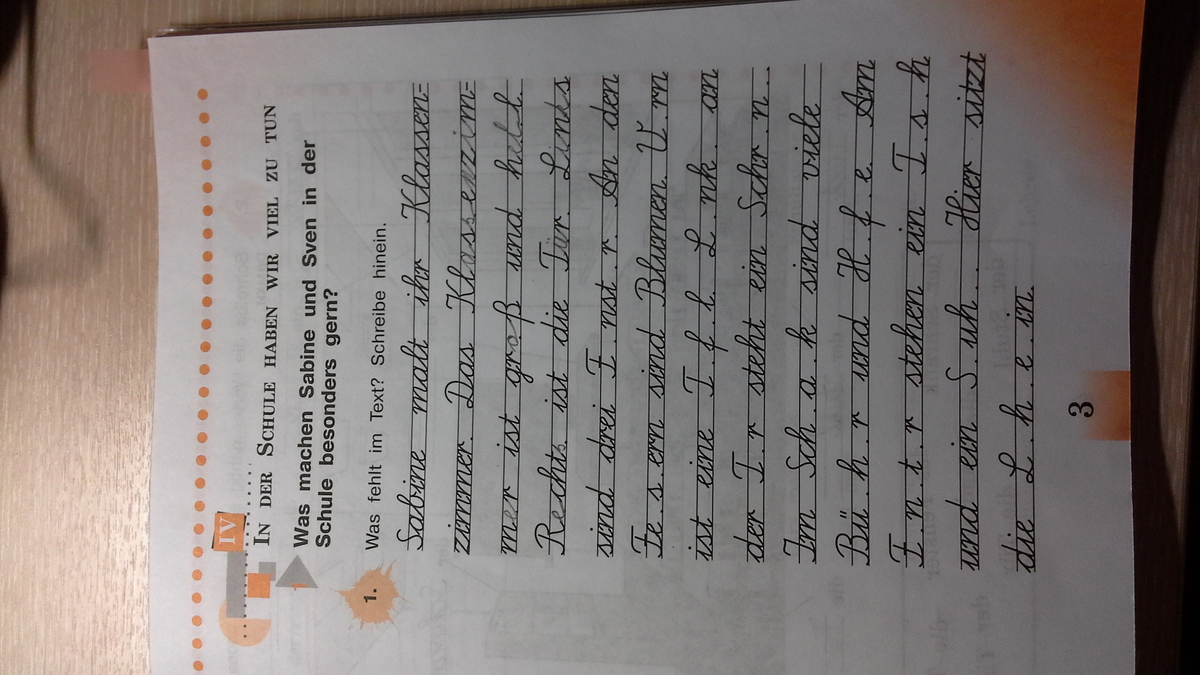 IV
IN DER SCHULE HABEN WIR VIEL ZU TUN
Was machen Sabine und Sven in der
Schule besonders gern?
1. Was fehlt im Text? Schreibe hinein.
Sabine malt ihr Klassen=
zimmer. Das Klassenzim=
mer ist groß und hell.
Rechts ist die Tür. Links
sind drei F.nst.r. An den
Fe.s.ern sind Blumen. V.rn
ist eine T.f.l. L.nk. an
der T.r steht ein Schr.n..
Im Sch.a.k sind viele
Bü.h.r und H.f.e. Am
F.n.t.r stehen ein T.s.h
und ein S.uh.. Hier sitzt
die L.h.e.in.
3